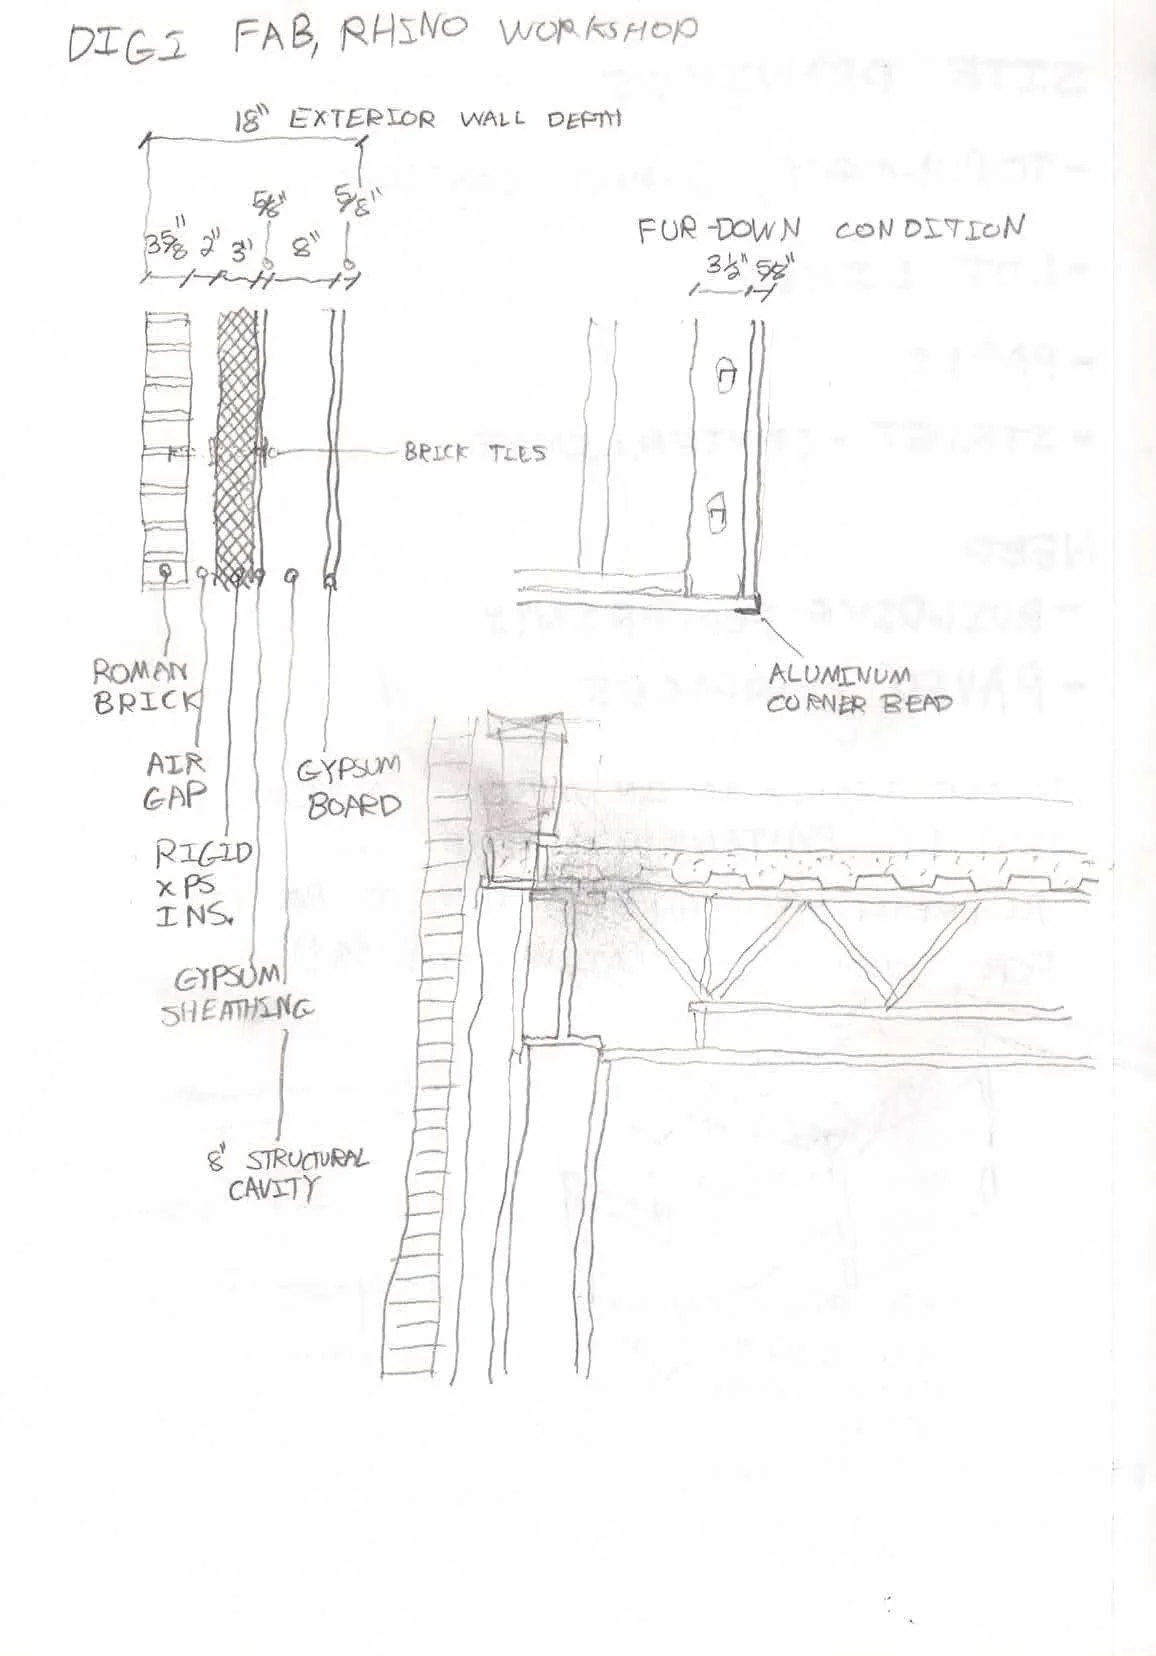 DIGI FAB, RHINO WORKSHOP
18" EXTERIOR WALL DEPTH
5/8" 5/8"
3 5/8" 2" 3" 8"
FUR-DOWN CONDITION
3 1/2" 5/8"
BRICK TIES
ROMAN
BRICK
ALUMINUM
CORNER BEAD
AIR
GAP
GYPSUM
BOARD
RIGID
XPS
INS.
GYPSUM
SHEATHING
8" STRUCTURAL
CAVITY